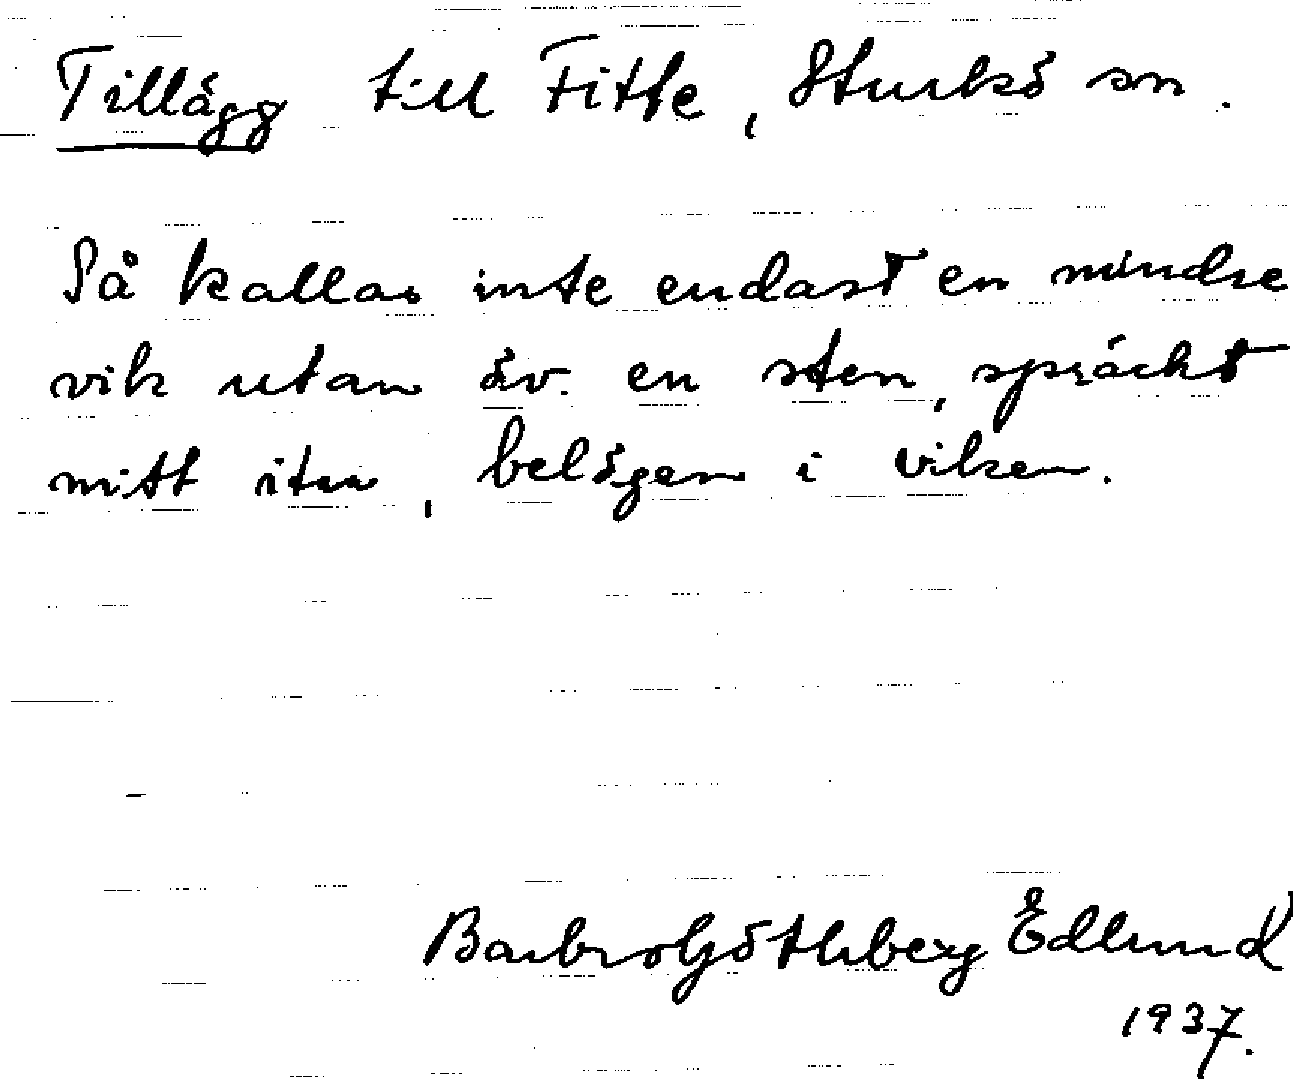 Tillägg till Fitte, Sturkö sn.
Så kallas inte endast en mindre
vik utan äv. en sten, spräckt
mitt itu, belägen i viken.
Barbro Göthberg Edlund
1937.